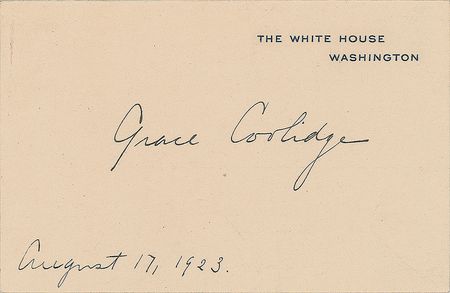 THE WHITE HOUSE
WASHINGTON
Grace Coolidge
August 17, 1923.